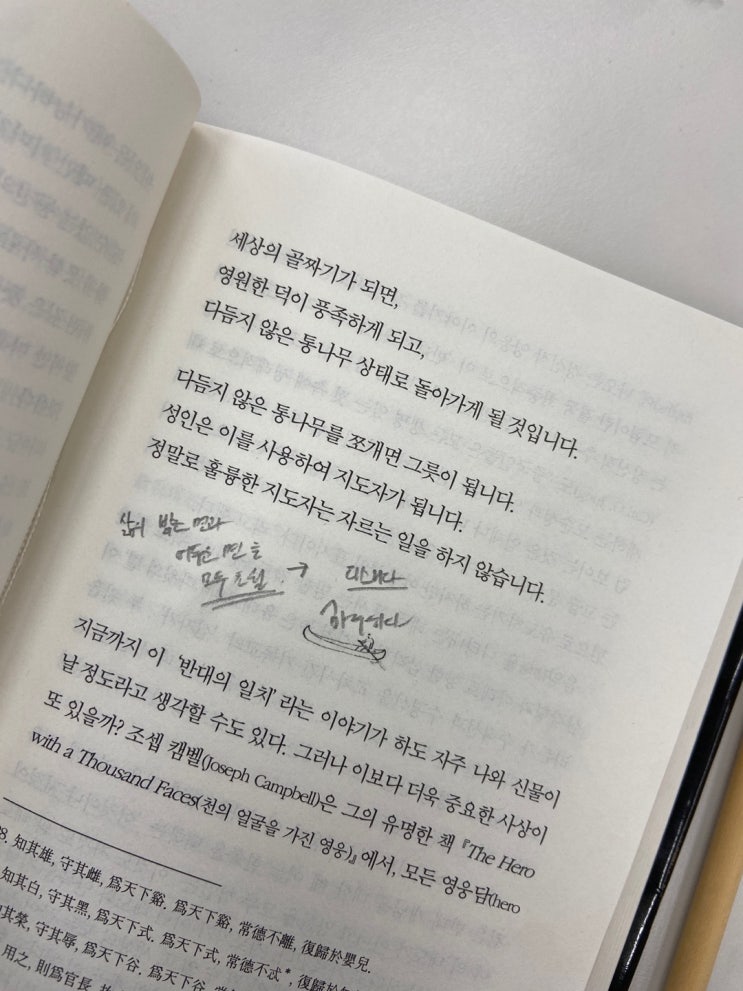 세상의 골짜기가 되면,
영원한 덕이 풍족하게 되고,
다듬지 않은 통나무 상태로 돌아가게 될 것입니다.
다듬지 않은 통나무를 쪼개면 그릇이 됩니다.
성인은 이를 사용하여 지도자가 됩니다.
정말로 훌륭한 지도자는 자르는 일을 하지 않습니다.
삶의 밝은 면과
어두운 면을
모두 →
지금까지 이 '반대의 일치'라는 이야기가 하도 자주 나와 신물이
날 정도라고 생각할 수도 있다. 그러나 이보다 더욱 중요한 사상이
또 있을까? 조셉 캠벨(Joseph Campbell)은 그의 유명한 책 『The Hero
with a Thousand Faces(천의 얼굴을 가진 영웅)』에서, 모든 영웅담(hero
8. 知其雄, 守其雌, 爲天下谿. 爲天下谿, 常德不離, 復歸於嬰兒.
知其白, 守其黑, 爲天下式. 爲天下式, 常德不忒*, 復歸於
其榮, 守其辱, 爲天下谷. 爲天下谷, 常
用之, 則爲官長,